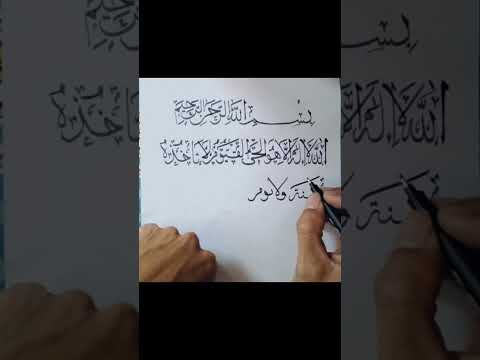 بسم الله الرحمن الرحيم
الله لا إله إلا هو الحي القيوم لا تأخذه
سنة ولا نوم